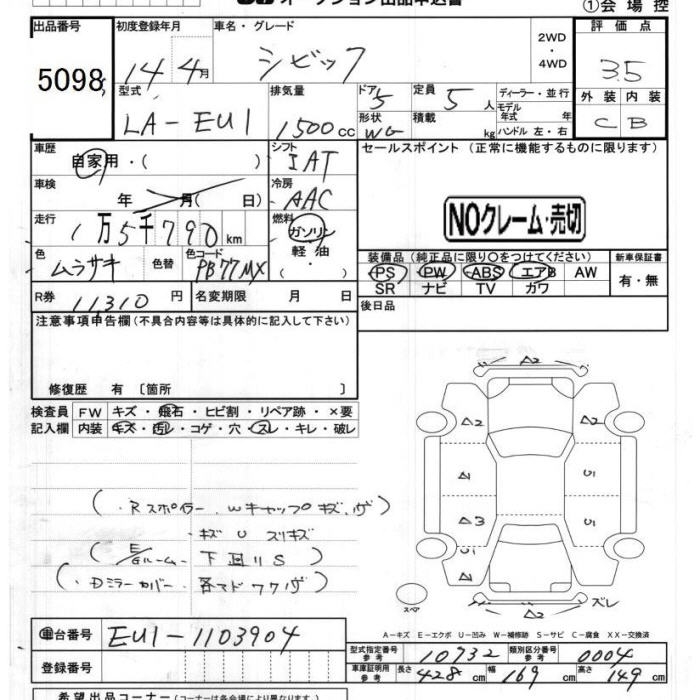 オークション出品申込書
①会場控
出品番号 5098
初度登録年月 14年 4月
車名・グレード シビック
2WD・4WD
評価点 3.5
型式 LA-EU1
排気量 1500cc
ドア 5
形状 WG
定員 5人
積載 kg
ディーラー・並行
モデル年式 年
ハンドル 左・右
外装 C
内装 B
車歴 自家用・( )
シフト IAT
セールスポイント (正常に機能するものに限ります)
車検 年 月( 日)
冷房 AAC
走行 1万5千790km
燃料 ガソリン・軽油・
NOクレーム・売切
色 ムラサキ
色替
色コード PB77MX
装備品 (純正品に限り○をつけてください)
新車保証書 有・無
PS PW ABS エアB AW
SR ナビ TV カワ
R券 11,310円
名変期限 月 日
後日品
注意事項申告欄(不具合内容等は具体的に記入して下さい)
修復歴 有 [箇所 ]
検査員記入欄
FW キズ・飛石・ヒビ割・リペア跡・×要
内装 キズ・汚レ・コゲ・穴・スレ・キレ・破レ
(・Rスポイラー、Wキャップキズ、
キズ U スリキズ
(E/Gルーム 下回りS)
(・Dミラーカバー・各マド
A2
A2 A2
A1 U1
A3 U1
U1
A1 A2
A2 ズレ
スペア
A-キズ E-エクボ U-凹み W-補修跡 S-サビ C-腐食 XX-交換済
車台番号 EU1-1103904
登録番号
型式指定番号 参考 10732
類別区分番号 参考 0004
車庫証明用 参考 長さ 428cm 幅 169cm 高さ 149cm
希望出品コーナー(コーナーは各会場により異なります。